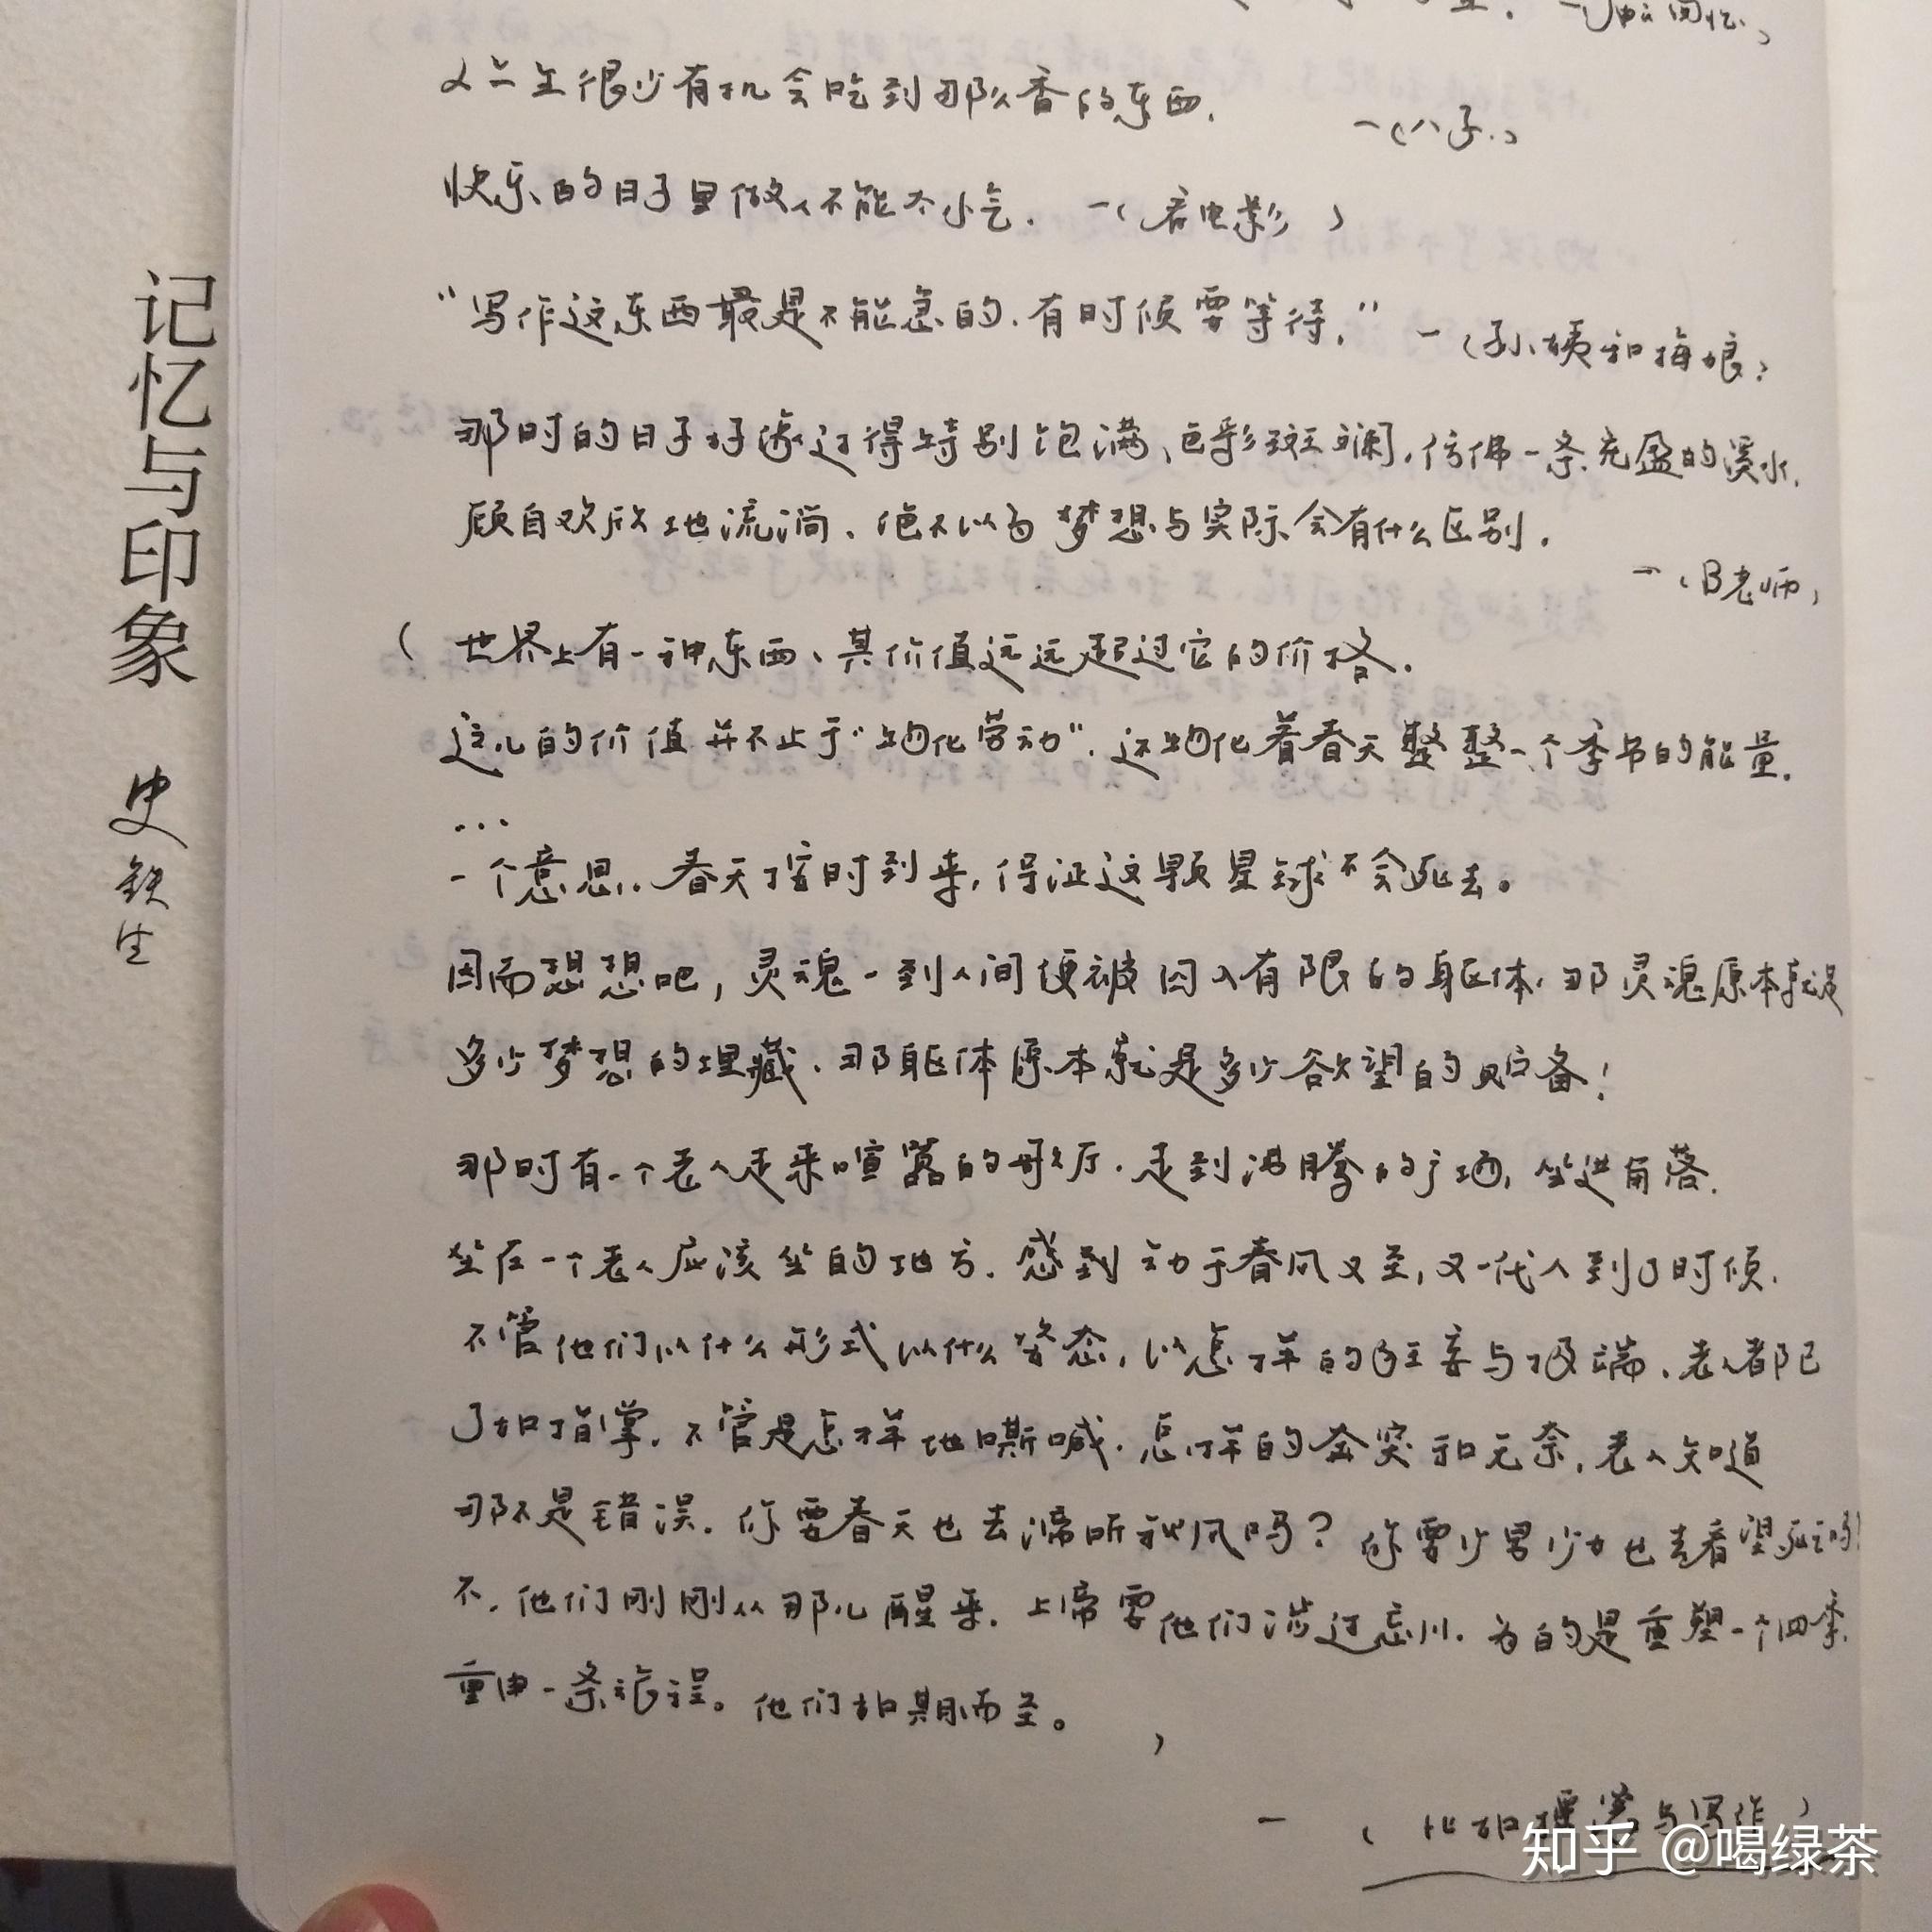 回忆)
人一生很少有机会吃到那么香的东西.
—(八子.)
快乐的日子里做人不能太小气. —(看电影)
“写作这东西最是不能急的.有时候要等待.” —(孙姨和梅娘)
那时的日子好像过得特别饱满、色彩斑斓.仿佛一条充盈的溪水.
顾自欢欣地流淌.绝不以为梦想与实际会有什么区别.
—(B老师)
(世界上有一种东西、其价值远远超过它的价格.
这儿的价值并不止于“物化劳动”.还物化着春天整整一个季节的能量.
...
一个意思..春天按时到来,保证这颗星球不会死去。
因而想想吧,灵魂一到人间便被囚入有限的躯体.那灵魂原本就是
多少梦想的埋藏.那躯体原本就是多少欲望的贮备!
那时有一个老人走来喧嚣的歌厅.走到沸腾的广场,坐进角落.
坐在一个老人应该坐的地方.感到动于春风又至,又一代人到了时候.
不管他们以什么形式以什么姿态,以怎样的狂妄与极端.老人都已
了如指掌.不管是怎样地嘶喊.怎样的奔突和无奈,老人知道
那不是错误.你要春天也去谛听秋风吗?你要少男少女也去看望死亡吗!
不.他们刚刚从那儿醒来.上帝要他们涉过忘川.为的是重塑一个四季.
重申一条旅程。他们如期而至。)
—(比如摇滚与写作)
记忆与印象
史铁生
知乎 @喝绿茶